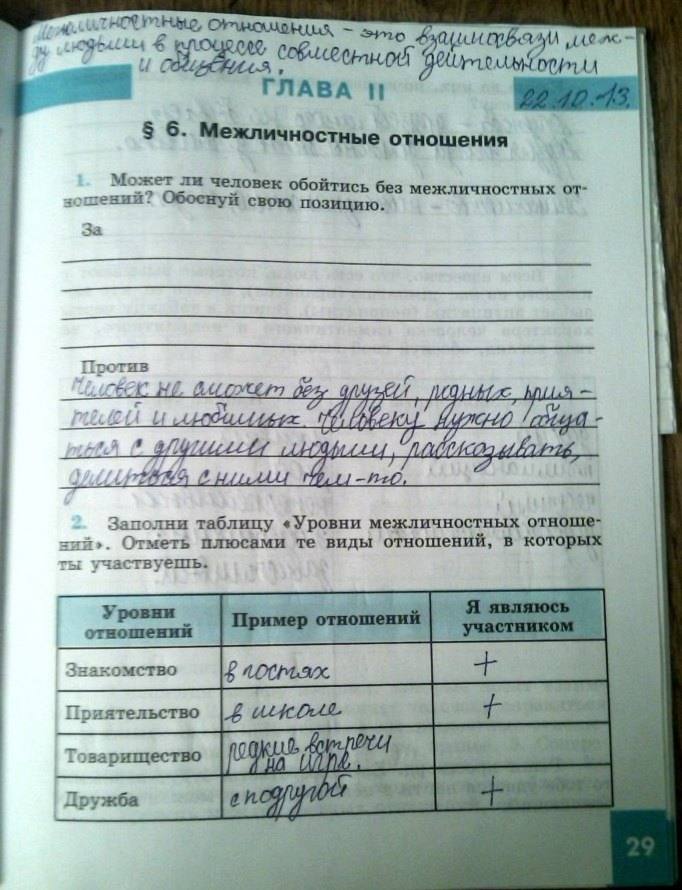 Межличностные отношения - это взаимосвязи меж-
ду людьми в процессе совместной деятельности
и общения.
ГЛАВА II
22.10.13.
§ 6. Межличностные отношения
1. Может ли человек обойтись без межличностных от-
ношений? Обоснуй свою позицию.
За
Против
Человек не сможет без друзей, родных, прия-
телей и любимых. Человеку нужно обща-
ться с другими людьми, рассказывать,
делиться с ними чем-то.
2. Заполни таблицу «Уровни межличностных отноше-
ний». Отметь плюсами те виды отношений, в которых
ты участвуешь.
Уровни отношений Пример отношений Я являюсь участником
Знакомство в гостях +
Приятельство в школе +
Товарищество редкие встречи на игре.
Дружба с подругой +
29